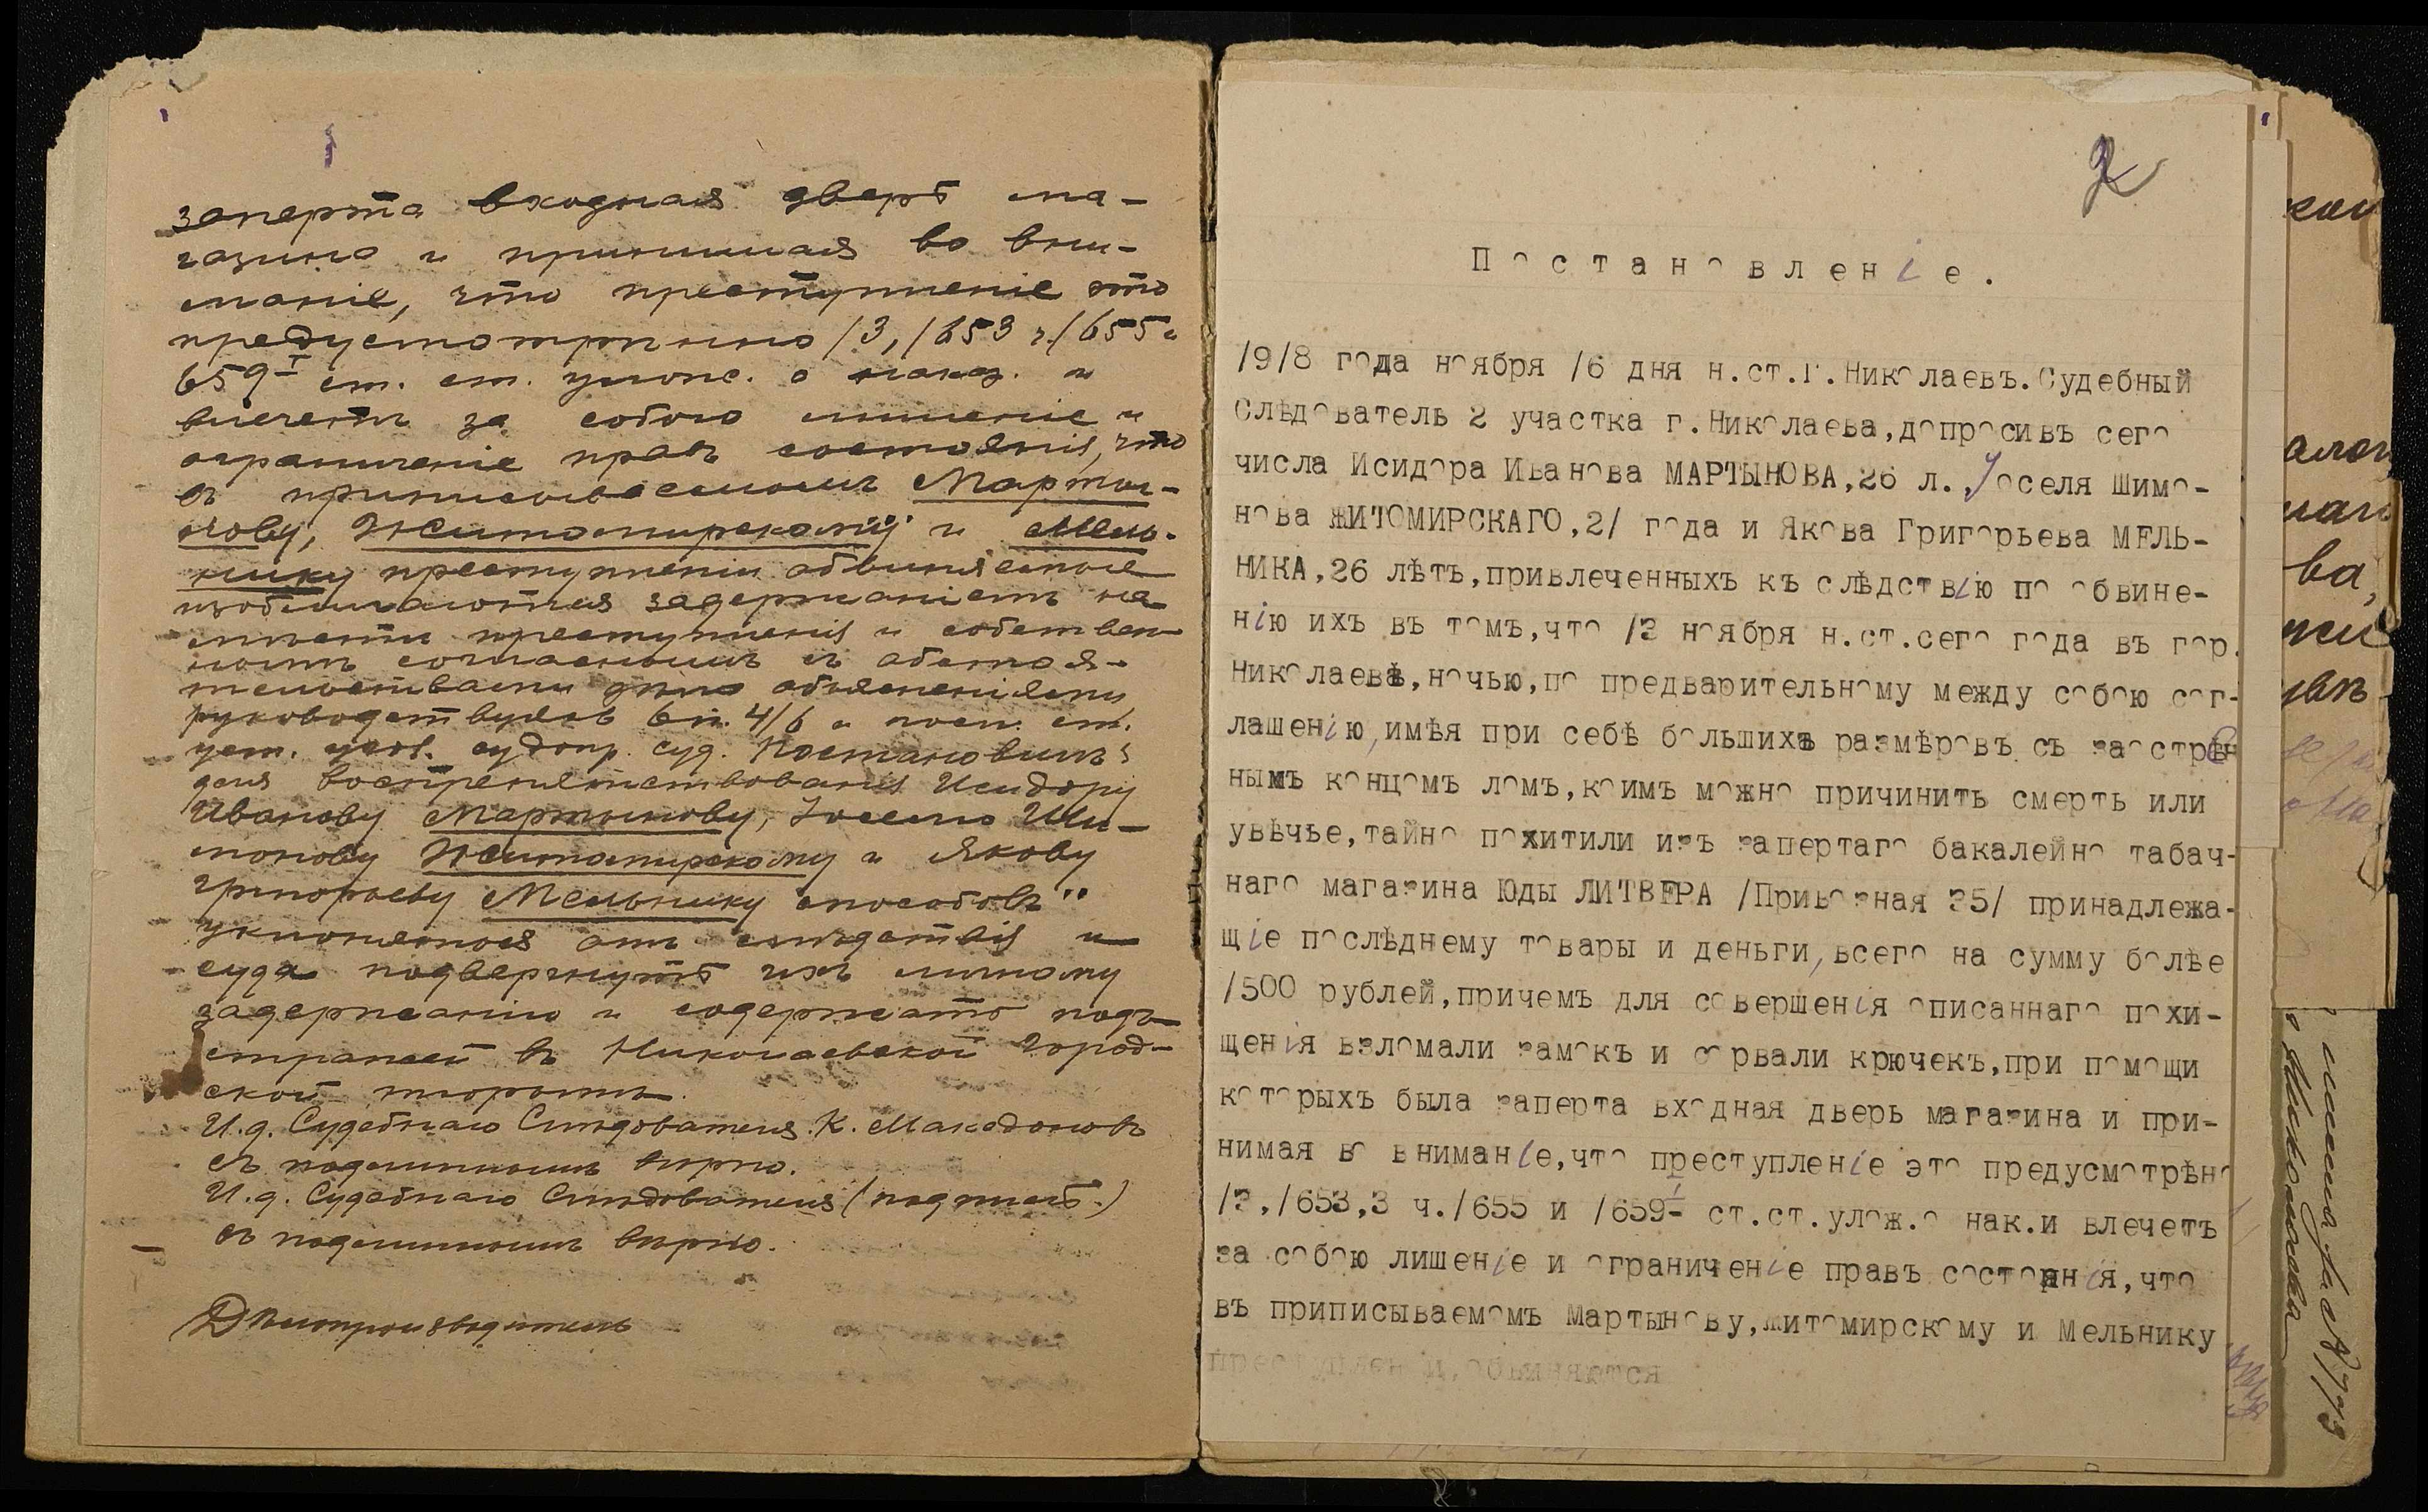 заперта входная дверь ма-
газина и принимая во вни-
маніе, что преступленіе это
предусмотрѣнно 13, 1653 ч. 1655 и
659 I ст. ст. улож. о наказ. и
влечетъ за собою лишеніе и
ограниченіе правъ состоянія, что
въ приписываемомъ Марты-
нову, Житомирскому и Мель-
нику преступленіи обвиняемые
изобличаются задержаніемъ на
мѣстѣ преступленія и собствен-
нымъ согласнымъ съ обстоя-
тельствами дѣла объясненіями
руководствуясь 6 п. 416 и посл. ст.
уст. угол. судопр. суд. Постановилъ:
для воспрепятствованія Исидору
Иванову Мартынову, Іоселю Ши-
монову Житомирскому и Якову
Григорьеву Мельнику способовъ
уклоняться отъ слѣдствія и
суда подвергнуть ихъ личному
задержанію и содержать подъ
стражей въ Николаевской город-
ской тюрьмѣ.
И.д. Судебнаго Слѣдователя К. Македоновъ
съ подлиннымъ вѣрно.
И.д. Судебнаго Слѣдователя (подпись.)
съ подлиннымъ вѣрно.
Дѣлопроизводитель
2
Постановленіе.
/9/8 года ноября /6 дня н.ст.Г.Николаевъ.Судебный
Слѣдователь 2 участка г.Николаева,допросивъ сего
числа Исидора Иванова МАРТЫНОВА,26 л.,Іоселя Шимо-
нова ЖИТОМИРСКАГО,2/ года и Якова Григорьева МЕЛЬ-
НИКА,26 лѣтъ,привлеченныхъ къ слѣдствію по обвине-
нію ихъ въ томъ,что /3 ноября н.ст.сего года въ гор.
Николаевѣ,ночью,по предварительному между собою сог-
лашенію,имѣя при себѣ большихъ размѣровъ съ заострен
нымъ концомъ ломъ,коимъ можно причинить смерть или
увѣчье,тайно похитили изъ запертаго бакалейно табач-
наго магазина Юды ЛИТВЕРА /Привозная 35/ принадлежа-
щіе послѣднему товары и деньги,всего на сумму болѣе
/500 рублей,причемъ для совершенія описаннаго похи-
щенія взломали замокъ и сорвали крючекъ,при помощи
которыхъ была заперта входная дверь магазина и при-
нимая во вниманіе,что преступленіе это предусмотрѣно
/3,/653,3 ч./655 и /659 I ст.ст.улож.о нак.и влечетъ
за собою лишеніе и ограниченіе правъ состоянія,что
въ приписываемомъ Мартынову,Житомирскому и Мельнику
преступленіи,обвиняются